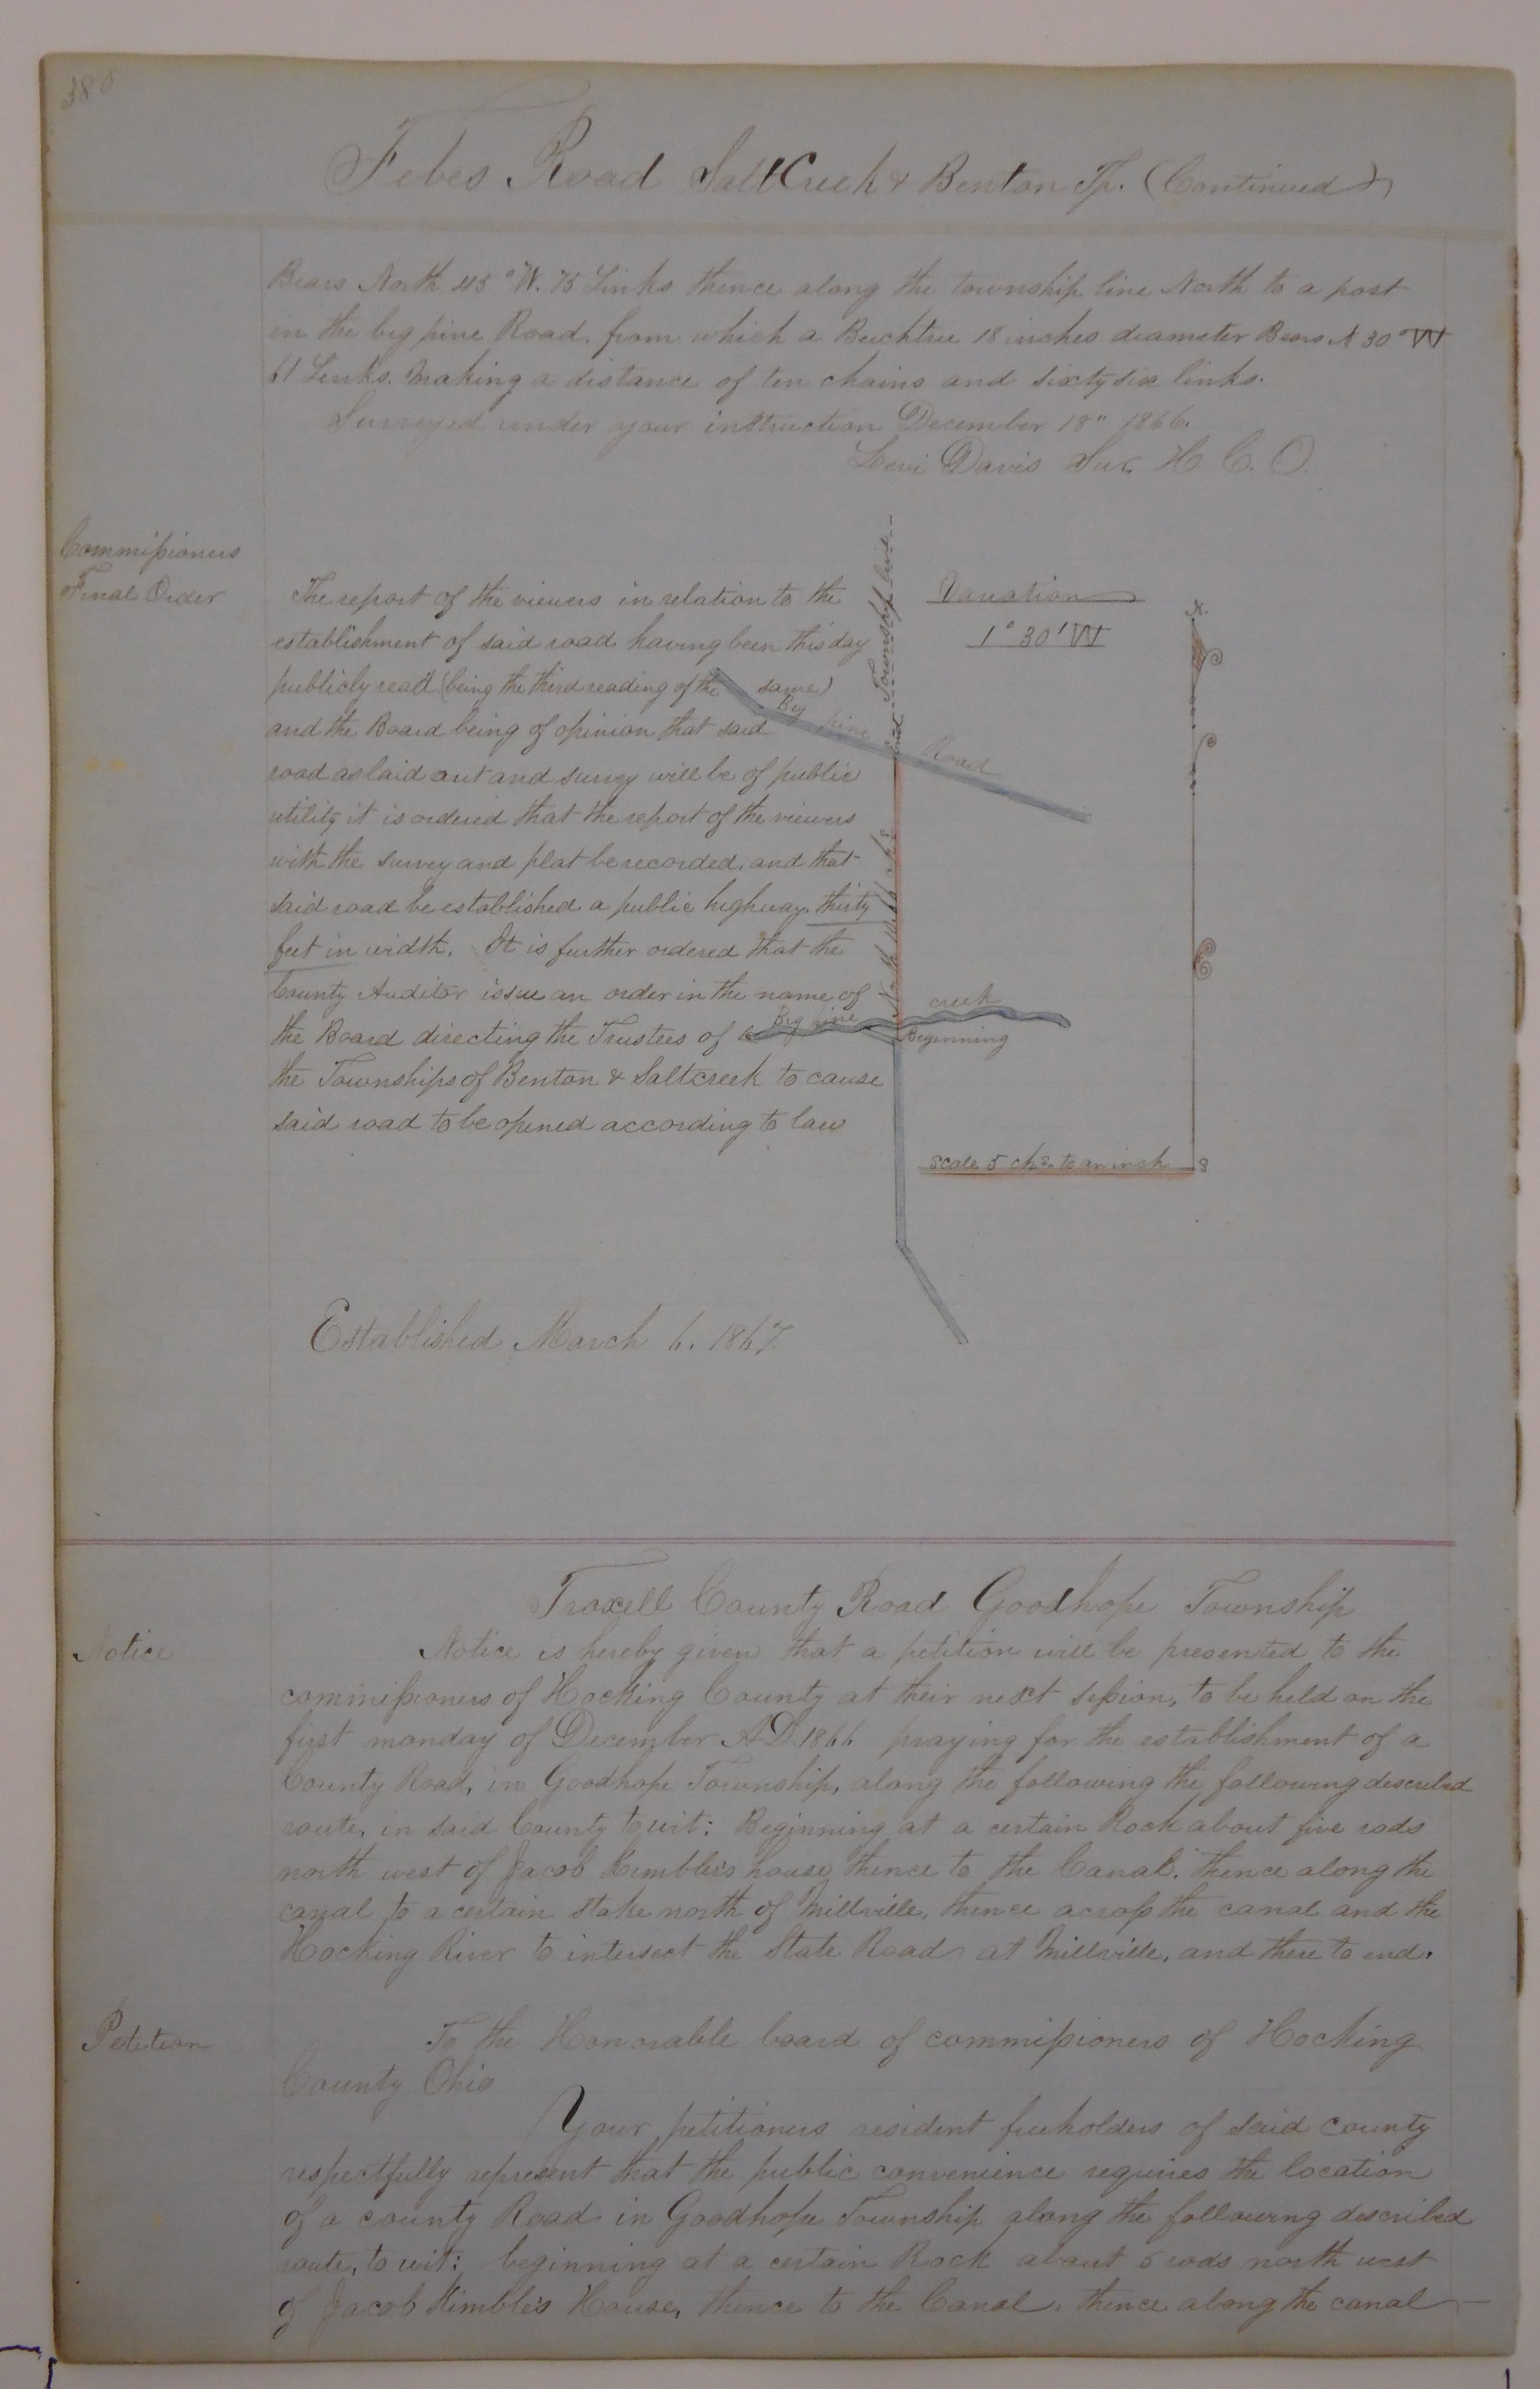 380
Febes Road Salt Creek & Benton Tp. (Continued)
Bears North 45° W. 75 Links thence along the township line North to a post
in the big pine Road, from which a Beechtree 18 inches diameter Bears N 30° W
61 Links. Making a distance of ten chains and sixty six links.
Surveyed under your instruction December 18" 1866.
Levi Davis Sur. H. C. O.
Commissioners
Final Order
The report of the viewers in relation to the
establishment of said road having been this day
publicly read (being the third reading of the same)
and the Board being of opinion that said
road as laid out and survey will be of public
utility it is ordered that the report of the viewers
with the survey and plat be recorded, and that
said road be established a public highway, thirty
feet in width. It is further ordered that the
County Auditor issue an order in the name of
the Board directing the Trustees of
the Townships of Benton & Saltcreek to cause
said road to be opened according to law
Township line
Variation
1° 30' W
N.
Big pine Road
End
North 10.66 chs
Big pine creek
Beginning
Scale 5 chs. to an inch
S
Established March 6. 1867.
Troxell County Road Goodhope Township
Notice
Notice is hereby given that a petition will be presented to the
commissioners of Hocking County at their next session, to be held on the
first monday of December A.D. 1866 praying for the establishment of a
County Road, in Goodhope Township, along the following the following described
route, in said County towit: Beginning at a certain Rock about five rods
north west of Jacob Kimble's house, thence to the Canal, thence along the
canal to a certain stake north of Millville, thence across the canal and the
Hocking River to intersect the State Road at Millville, and there to end.
Petition
To the Honorable board of commissioners of Hocking
County Ohio
Your petitioners resident freeholders of said county
respectfully represent that the public convenience requires the location
of a county Road in Goodhope Township along the following described
route, to wit: beginning at a certain Rock about 5 rods north west
of Jacob Kimble's House, thence to the Canal, thence along the canal